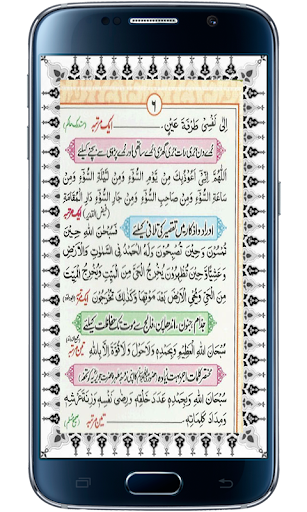 ٦
اِلٰى نَفْسِىْ طَرْفَةَ عَيْنٍ۔ ایک مرتبہ
اَللّٰهُمَّ اِنِّىْ اَعُوْذُبِكَ مِنْ يَّوْمِ السُّوْٓءِ وَمِنْ لَّيْلَةِ السُّوْٓءِ وَمِنْ
سَاعَةِ السُّوْٓءِ وَمِنْ صَاحِبِ السُّوْٓءِ وَمِنْ جَارِ السُّوْٓءِ فِىْ دَارِ الْمُقَامَةِ
اوراد و اذکار میں تقصیر کی تلافی کیلئے
فَسُبْحَانَ اللّٰهِ حِيْنَ
تُمْسُوْنَ وَحِيْنَ تُصْبِحُوْنَ وَلَهُ الْحَمْدُ فِى السَّمٰوٰتِ وَالْاَرْضِ
وَعَشِيًّا وَّحِيْنَ تُظْهِرُوْنَ يُخْرِجُ الْحَىَّ مِنَ الْمَيِّتِ وَيُخْرِجُ الْمَيِّتَ
مِنَ الْحَىِّ وَيُحْىِ الْاَرْضَ بَعْدَ مَوْتِهَا وَكَذٰلِكَ تُخْرَجُوْنَ ایک مرتبہ
جذام، جنون، اندھاپن، فالج سے حفاظت کیلئے
سُبْحَانَ اللّٰهِ الْعَظِيْمِ وَبِحَمْدِهٖ وَلَاحَوْلَ وَلَا قُوَّةَ اِلَّا بِاللّٰهِ تین مرتبہ
سُبْحَانَ اللّٰهِ وَبِحَمْدِهٖ عَدَدَ خَلْقِهٖ وَرِضٰى نَفْسِهٖ وَزِنَةَ عَرْشِهٖ
وَمِدَادَ كَلِمَاتِهٖ۔ تین مرتبہ